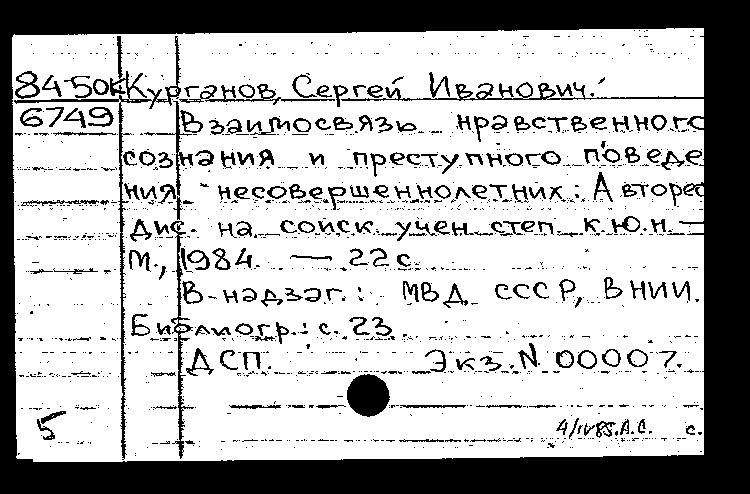 84-50к Курганов, Сергей Иванович.
6749 Взаимосвязь нравственного
сознания и преступного поведе
ния несовершеннолетних: Автореф
дис. на соиск. учен. степ. к.ю.н. —
М., 1984. — 22 с.
В надзаг.: МВД СССР, ВНИИ.
Библиогр.: с. 23.
ДСП. Экз. N 00007.
5 4/IV85.А.С. с.